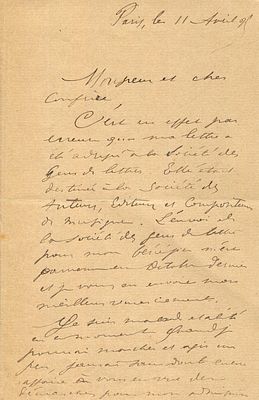 Paris, le 11 Avril 9
Monsieur et cher
Confrère,
C'est en effet par
erreur que ma lettre a
été adressée à la Société des
Gens de lettres. Elle était
destinée à la Société des
Auteurs, Editeurs et Compositeurs
de Musique. L'envoi de
la Société des gens de lettres
pour mon
parvenu en Octobre dernier
et je vous en envoie mes
meilleurs remerciements.
Je suis malade et alité
en ce moment. Quand je
pourrai marcher et agir un
peu, j'aurai sans doute
à vous
démarches pour mon